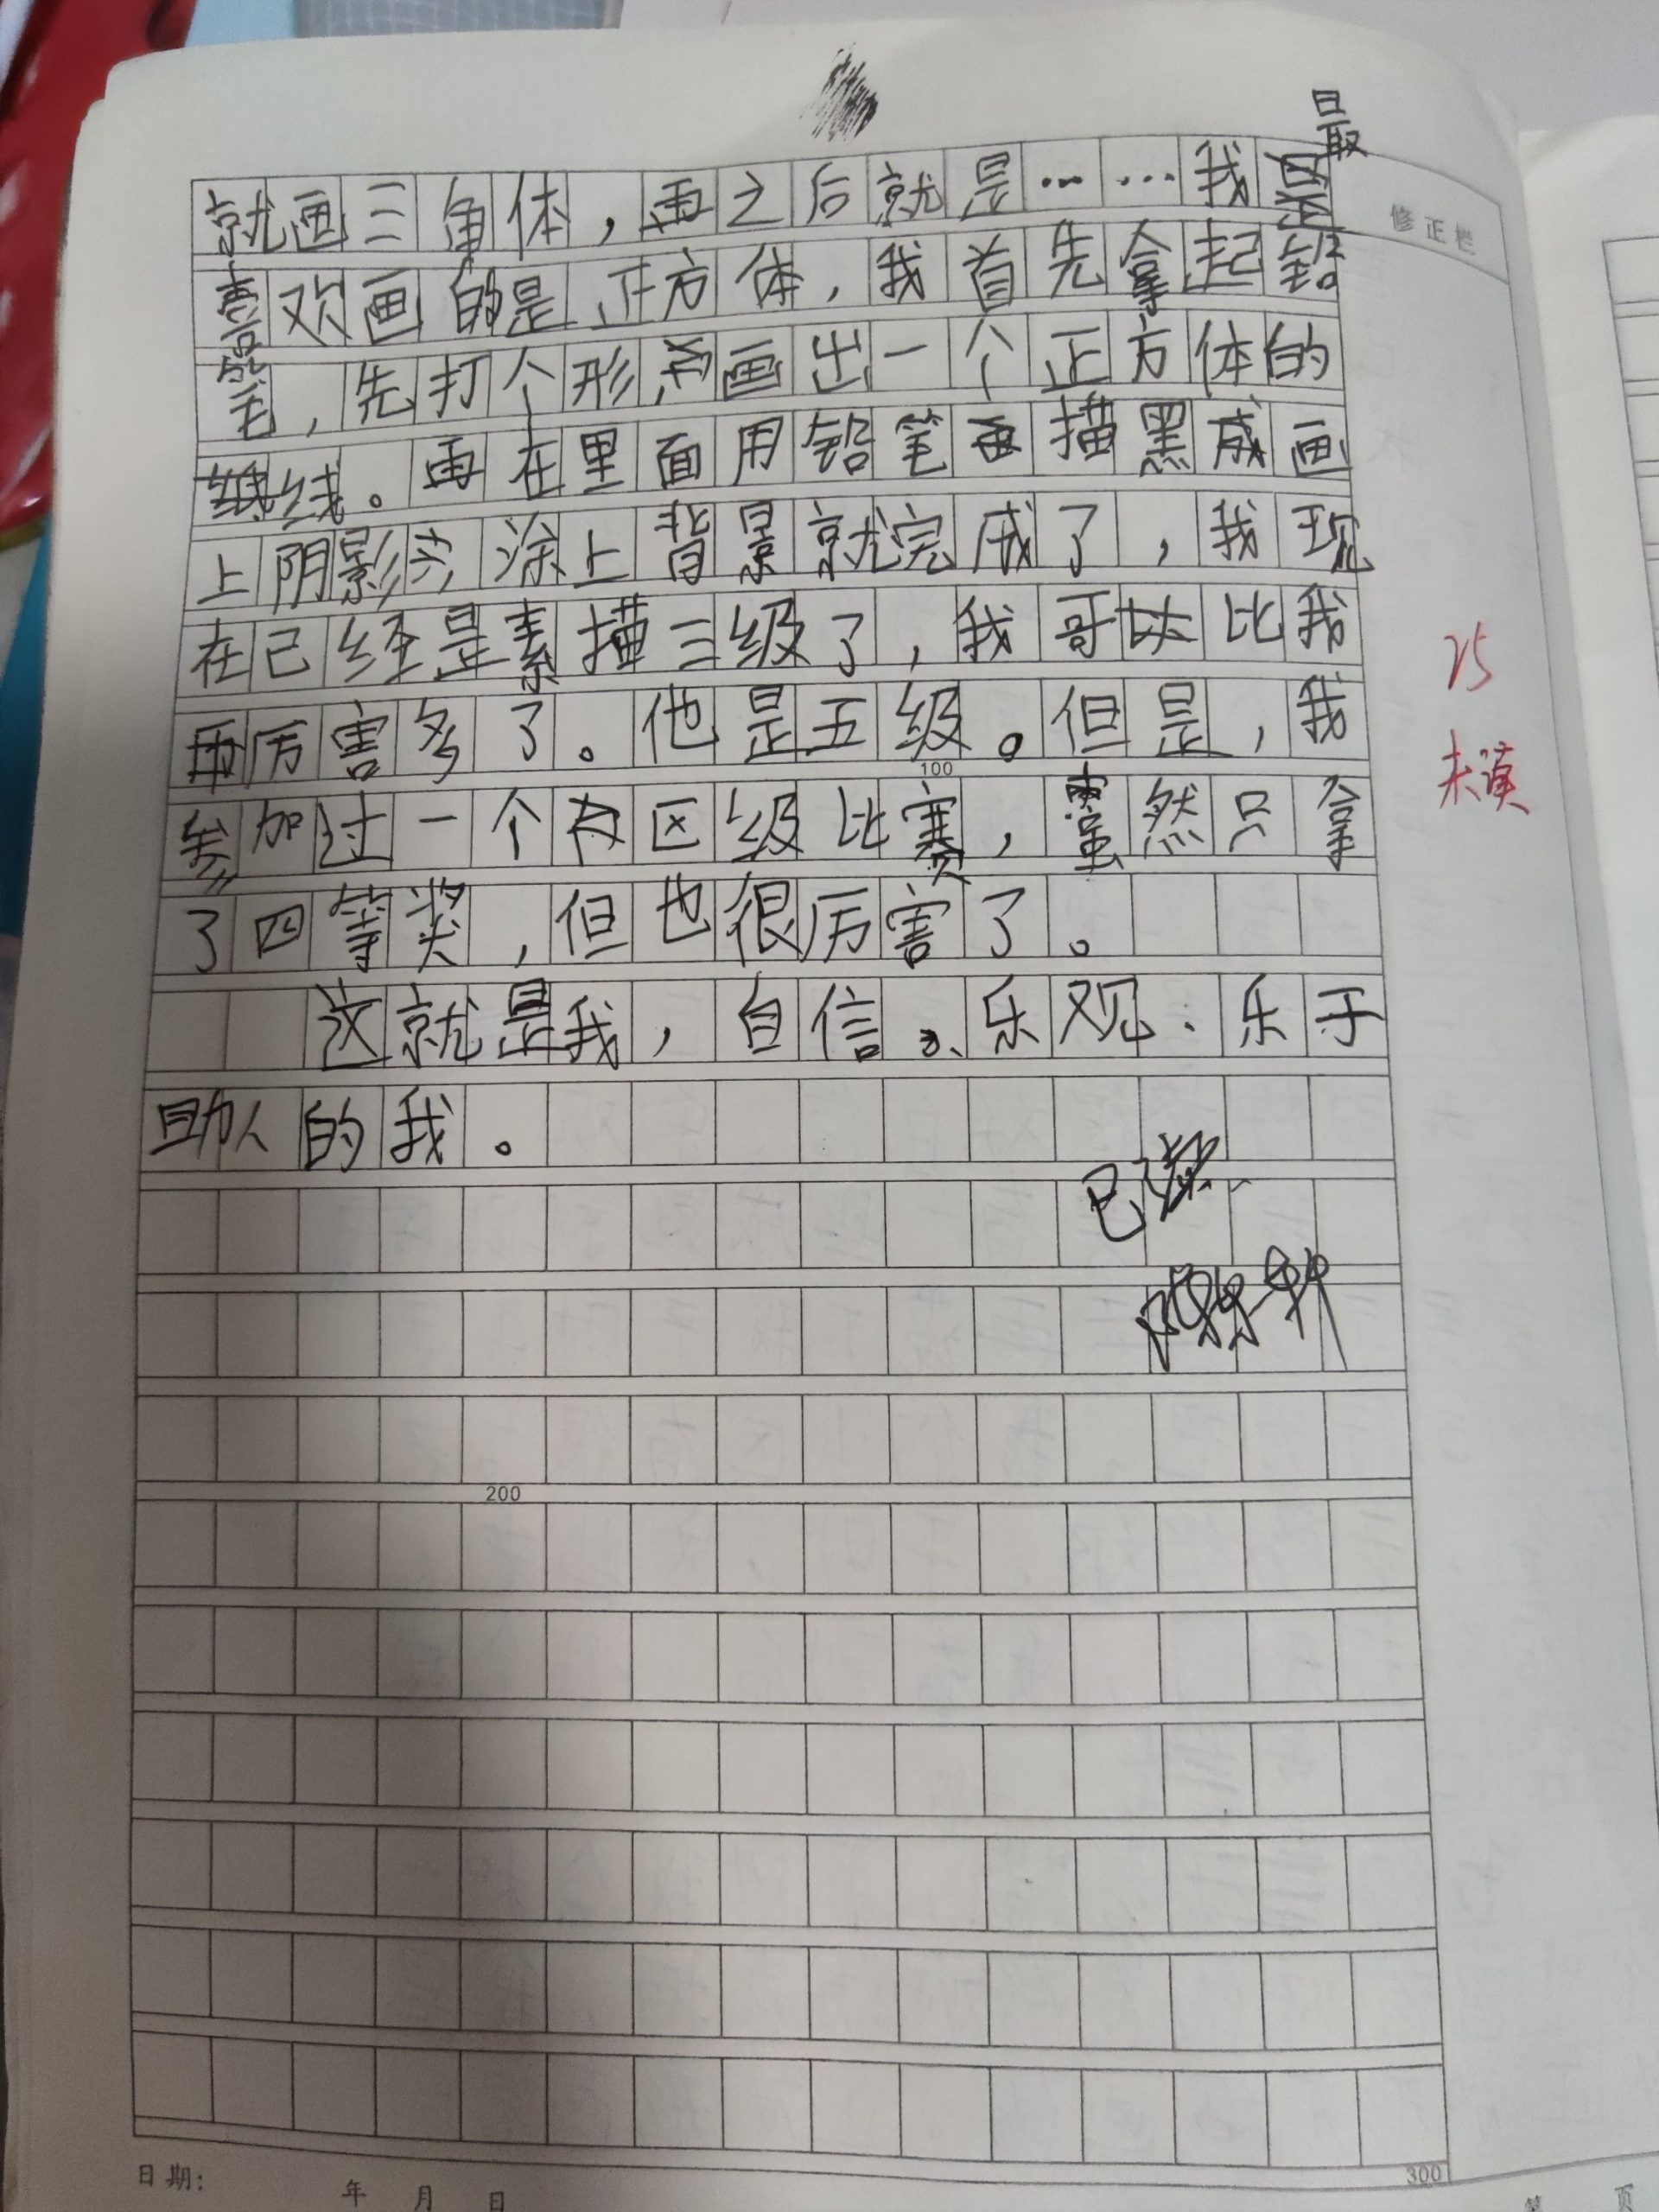 最
就画三角体，再之后就是……我最
修正栏
喜欢画的是正方体，我首先拿起铅
笔，先打个形，画出一个正方体的
线。再在里面用铅笔描黑成画
上阴影，涂上背景就完成了，我现
在己经是素描三级了，我哥比我
厉害多了。他是五级。但是，我
100
参加过一个区级比赛，虽然只拿
了四等奖，但也很厉害了。
这就是我，自信、乐观、乐于
助人的我。
25
未读
已读
200
300
日期： 年 月 日
第 页